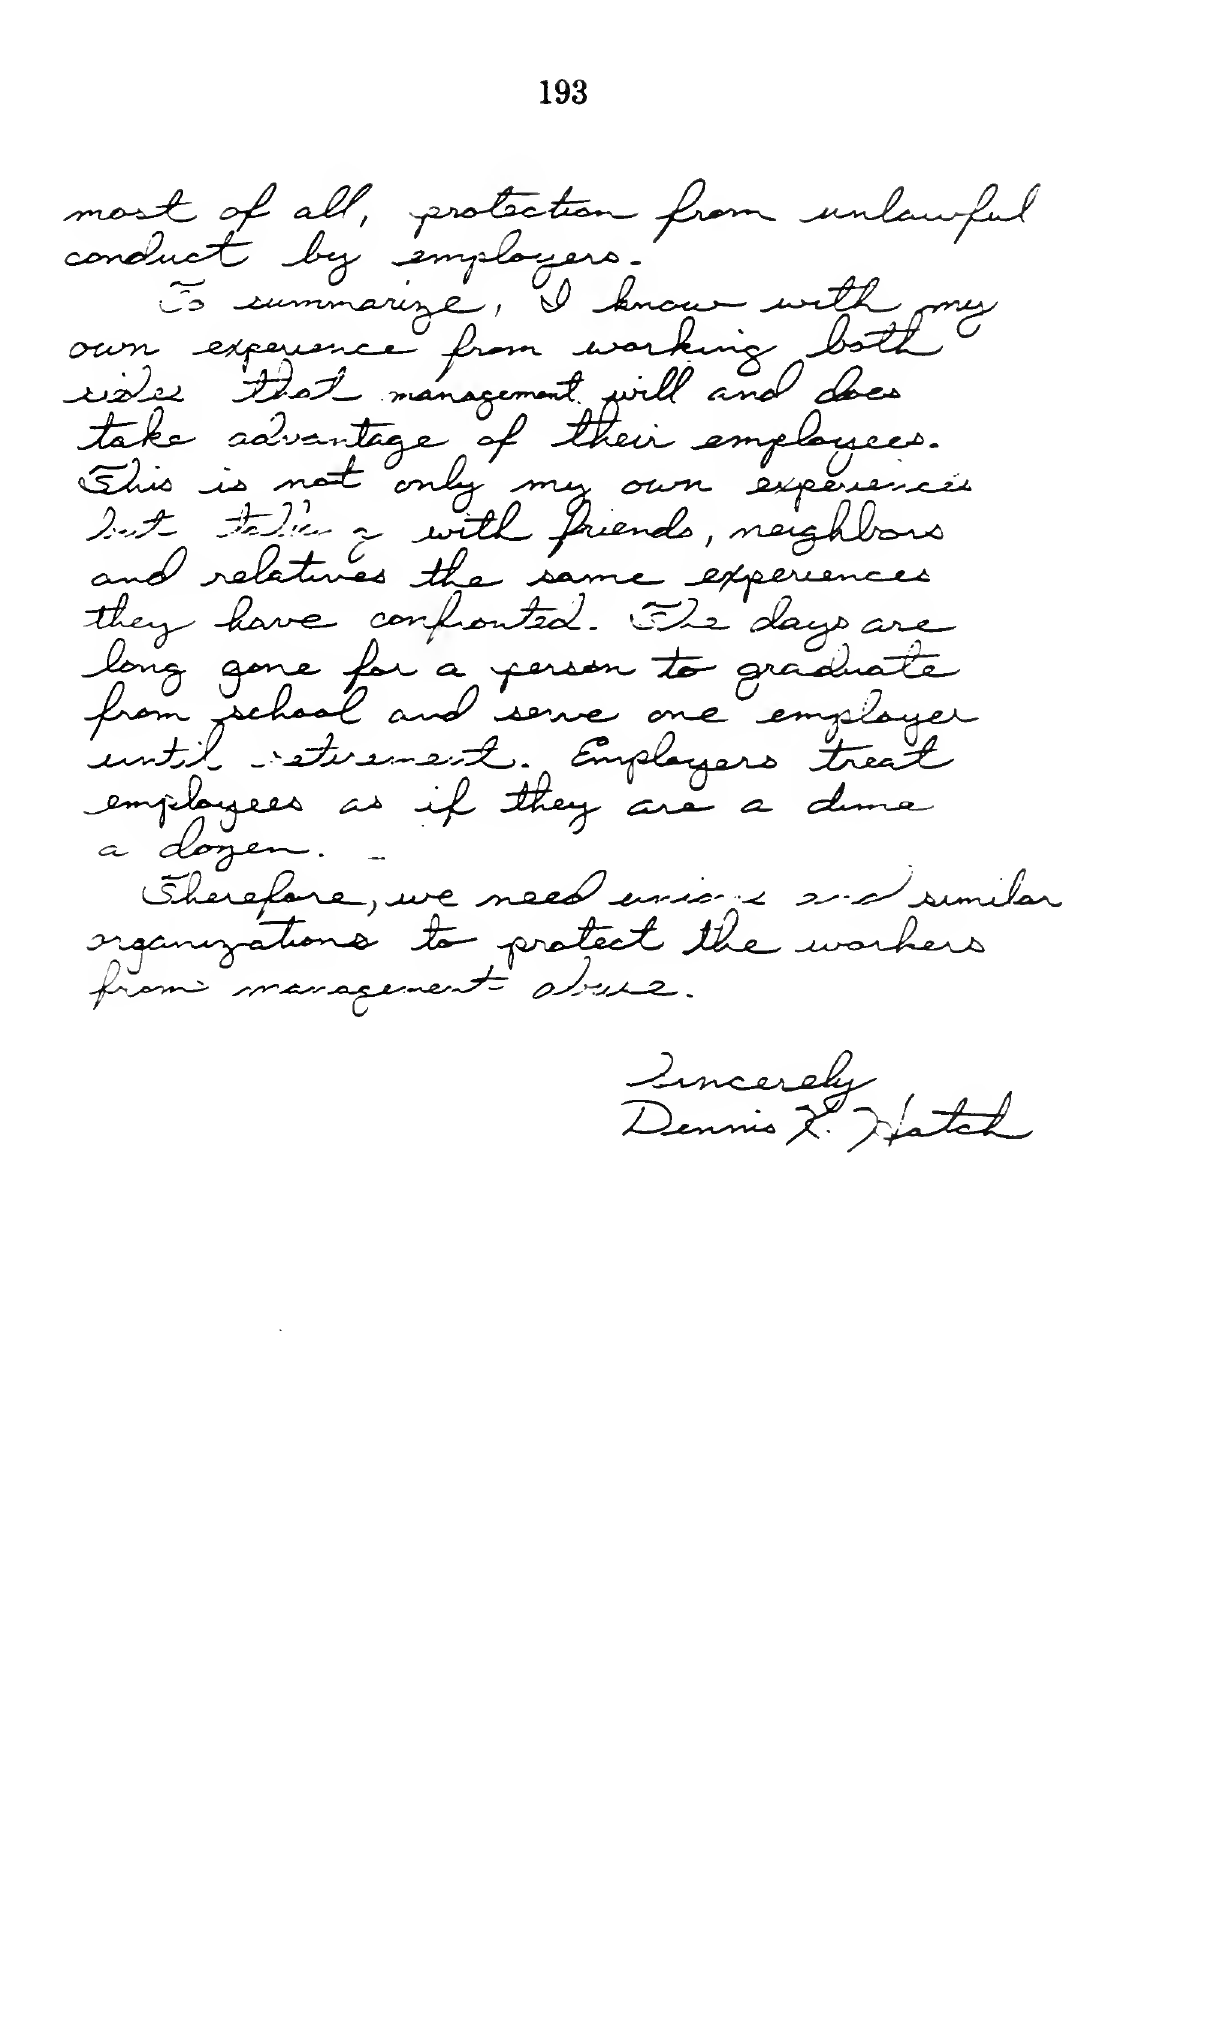 193
most of all, protection from unlawful
conduct by employers.
To summarize, I know with my
own experience from working both
sides that management will and does
take advantage of their employees.
This is not only my own experiences
but talking with friends, neighbors
and relatives the same experiences
they have confronted. The days are
long gone for a person to graduate
from school and serve one employer
until retirement. Employers treat
employees as if they are a dime
a dozen.
Therefore, we need unions and similar
organizations to protect the workers
from management abuse.
Sincerely
Dennis K. Hatch